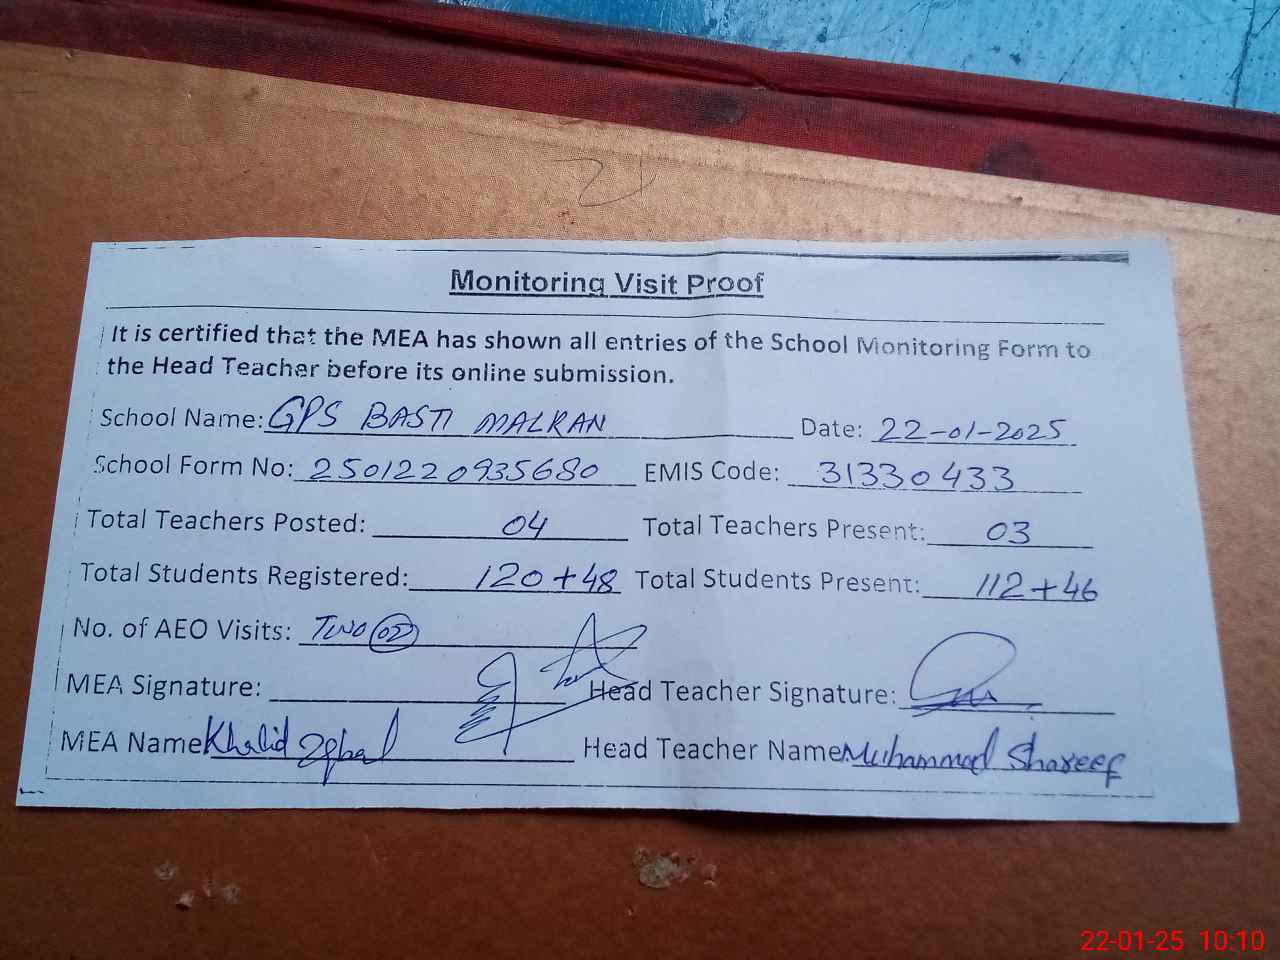 Monitoring Visit Proof
It is certified that the MEA has shown all entries of the School Monitoring Form to
the Head Teacher before its online submission.
School Name: GPS BASTI MALKAN Date: 22-01-2025
School Form No: 2501220935680 EMIS Code: 31330433
Total Teachers Posted: 04 Total Teachers Present: 03
Total Students Registered: 120+48 Total Students Present: 112+46
No. of AEO Visits: Two 02
MEA Signature: Head Teacher Signature:
MEA Name Khalid Iqbal Head Teacher Name: Muhammad Shareef
22-01-25 10:10